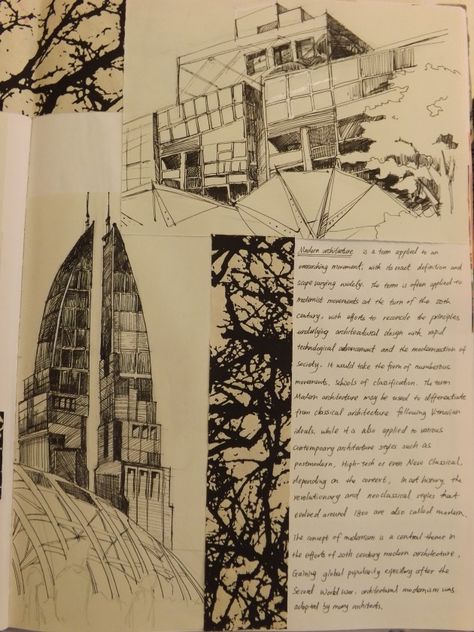 Modern architecture is a term applied to an
overarching movement, with its exact definition and
scope varying widely. The term is often applied to
modernist movements at the turn of the 20th
century, with efforts to reconcile the principles
underlying architectural design with rapid
technological advancement and the modernization of
society. It would take the form of numberous
movements, schools of classification. The term
Modern architecture may be used to differentiate
from classical architecture following Vitruvian
ideals, while it is also applied to various
contemporary architecture styles such as
postmodern, High-tech or even New Classical,
depending on the context. In art history, the
revolutionary and neoclassical styles that
evolved around 1800 are also called modern.
The concept of modernism is a central theme in
the efforts of 20th century modern architecture.
Gaining global popularity especially after the
Second World War, architectural modernism was
adopted by many architects.